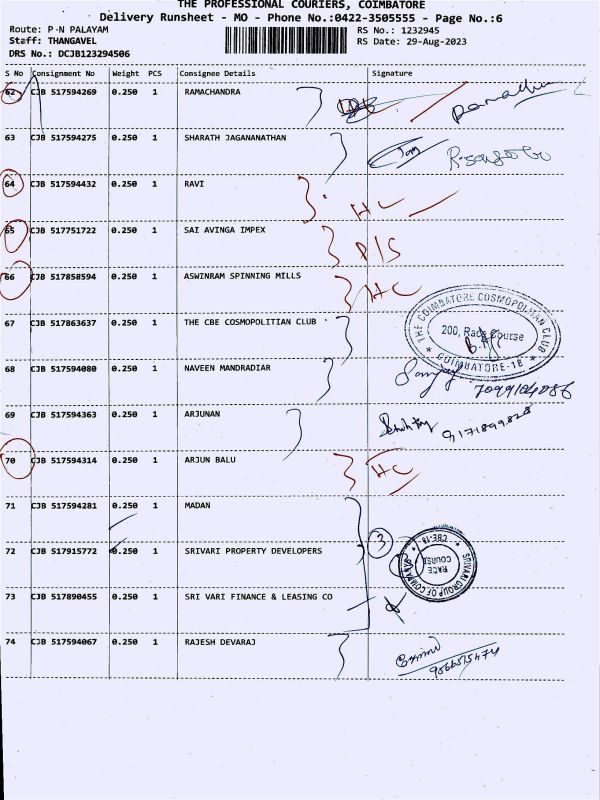 THE PROFESSIONAL COURIERS, COIMBATORE
Delivery Runsheet - MO - Phone No.:0422-3505555 - Page No.:6
Route: P-N PALAYAM
RS No.: 1232945
Staff: THANGAVEL
RS Date: 29-Aug-2023
DRS No.: DCJB123294506
S No Consignment No Weight PCS Consignee Details Signature
62 CJB 517594269 0.250 1 RAMACHANDRA
63 CJB 517594275 0.250 1 SHARATH JAGANANATHAN
64 CJB 517594432 0.250 1 RAVI
HC
65 CJB 517751722 0.250 1 SAI AVINGA IMPEX
P/S
66 CJB 517858594 0.250 1 ASWINRAM SPINNING MILLS
HC
67 CJB 517863637 0.250 1 THE CBE COSMOPOLITIAN CLUB
THE COIMBATORE COSMOPOLITAN CLUB
200, Race Course
COIMBATORE-18
68 CJB 517594080 0.250 1 NAVEEN MANDRADIAR
69 CJB 517594363 0.250 1 ARJUNAN
70 CJB 517594314 0.250 1 ARJUN BALU
HC
71 CJB 517594281 0.250 1 MADAN
72 CJB 517915772 0.250 1 SRIVARI PROPERTY DEVELOPERS
3
SRIVARI GROUP OF COMPANY
RACE COURSE
CBE-18
73 CJB 517890455 0.250 1 SRI VARI FINANCE & LEASING CO
74 CJB 517594067 0.250 1 RAJESH DEVARAJ